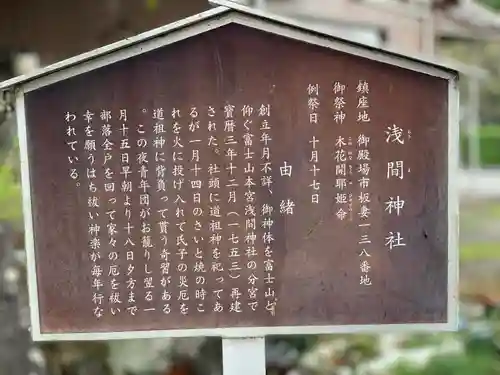 浅間神社
鎮座地　御殿場市板妻一三八番地
御祭神　木花開耶姫命
例祭日　十月十七日
由緒
創立年月不詳、御神体を富士山と
仰ぐ富士山本宮浅間神社の分宮で
宝暦三年十二月（一七五三）再建
された。社頭に道祖神を祀ってあ
るが一月十四日のさいと焼の時こ
れを火に投げ入れて氏子の災厄を
道祖神に背負って貰う奇習がある
。この夜青年団がお籠りし翌る一
月十五日早朝より十八日夕方まで
部落全戸を回って家々の厄を祓い
幸を願うはち祓い神楽が毎年行な
われている。